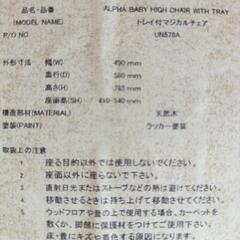 品名・品番 ALPHA BABY HIGH CHAIR WITH TRAY
(MODEL NAME) トレイ付マジカルチェア
P/O NO UN578A
外形寸法 幅(W) 490 mm
奥行(D) 580 mm
高さ(H) 785 mm
座面高(SH) 410-540 mm
構造部材(MATERIAL) 天然木
塗装(PAINT) ラッカー塗装
取扱上の注意
1 座る目的以外では使用しないでください。
2 座面以外に座らないで下さい。
3 直射日光またはストーブなどの熱は避けてください。
4 移動させるときは持ち上げて移動させてください。
5 ウッドフロアや畳の上で使用する場合、カーペットを
敷くか、脚部に保護材をつけてご使用下さい。
床・畳にキズや着色する原因になります。